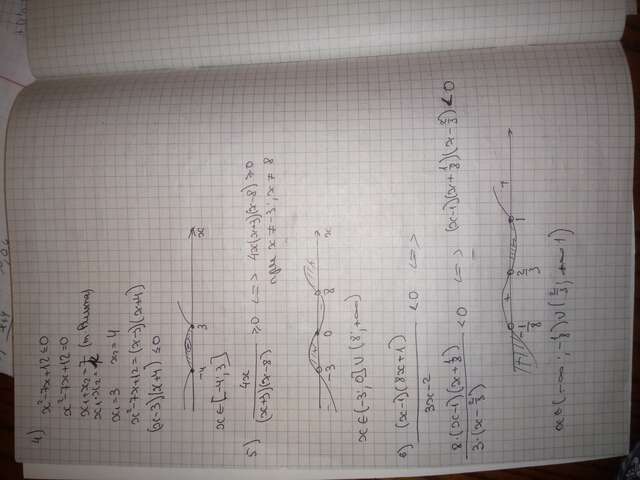 4) x²-7x+12≤0
x²-7x+12=0
x₁+x₂=7
x₁·x₂=12
x₁=3 x₂=4
x²-7x+12=(x-3)(x+4)
(x-3)(x+4)≤0
-4 3 x
x∈[-4;3]
5) 4x/((x+3)(x-8)) ≥0 <=> 4x(x+3)(x-8)≥0
при x≠-3; x≠8
-3 0 8 x
x∈(-3;0]∪(8;+∞)
6) (x-1)(8x+1)/(3x-2) <0 <=>
8·(x-1)(x+1/8)/(3·(x-2/3)) <0 <=> (x-1)(x+1/8)(x-2/3)<0
-1/8 + 2/3 1 +
x∈(-∞;-1/8)∪(2/3;+∞1)